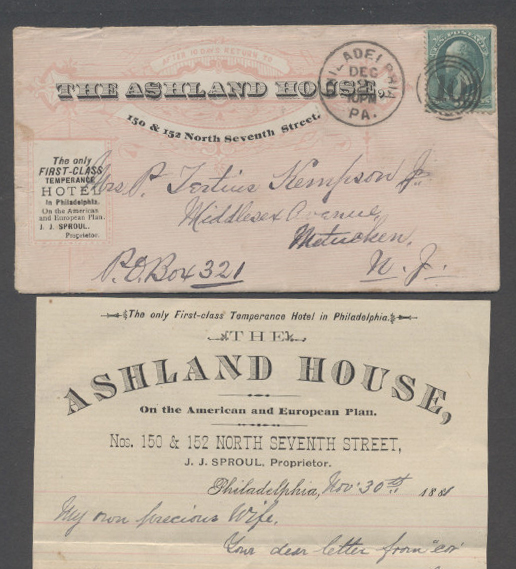 AFTER 10 DAYS RETURN TO
THE ASHLAND HOUSE,
150 & 152 North Seventh Street.
PHILADELPHIA
DEC
10 PM
PA.
The only
FIRST-CLASS
TEMPERANCE
HOTEL
in Philadelphia.
On the American
and European Plan.
J. J. SPROUL.
Proprietor.
Mrs P. Tertius Kempson Jr
Middlesex Avenue,
Metuchen,
P.O. Box 321
N. J.
The only First-class Temperance Hotel in Philadelphia.
THE
ASHLAND HOUSE,
On the American and European Plan.
Nos. 150 & 152 NORTH SEVENTH STREET,
J. J. SPROUL, Proprietor.
Philadelphia, Nov. 30th 1881
My own precious Wife,
Your dear letter from